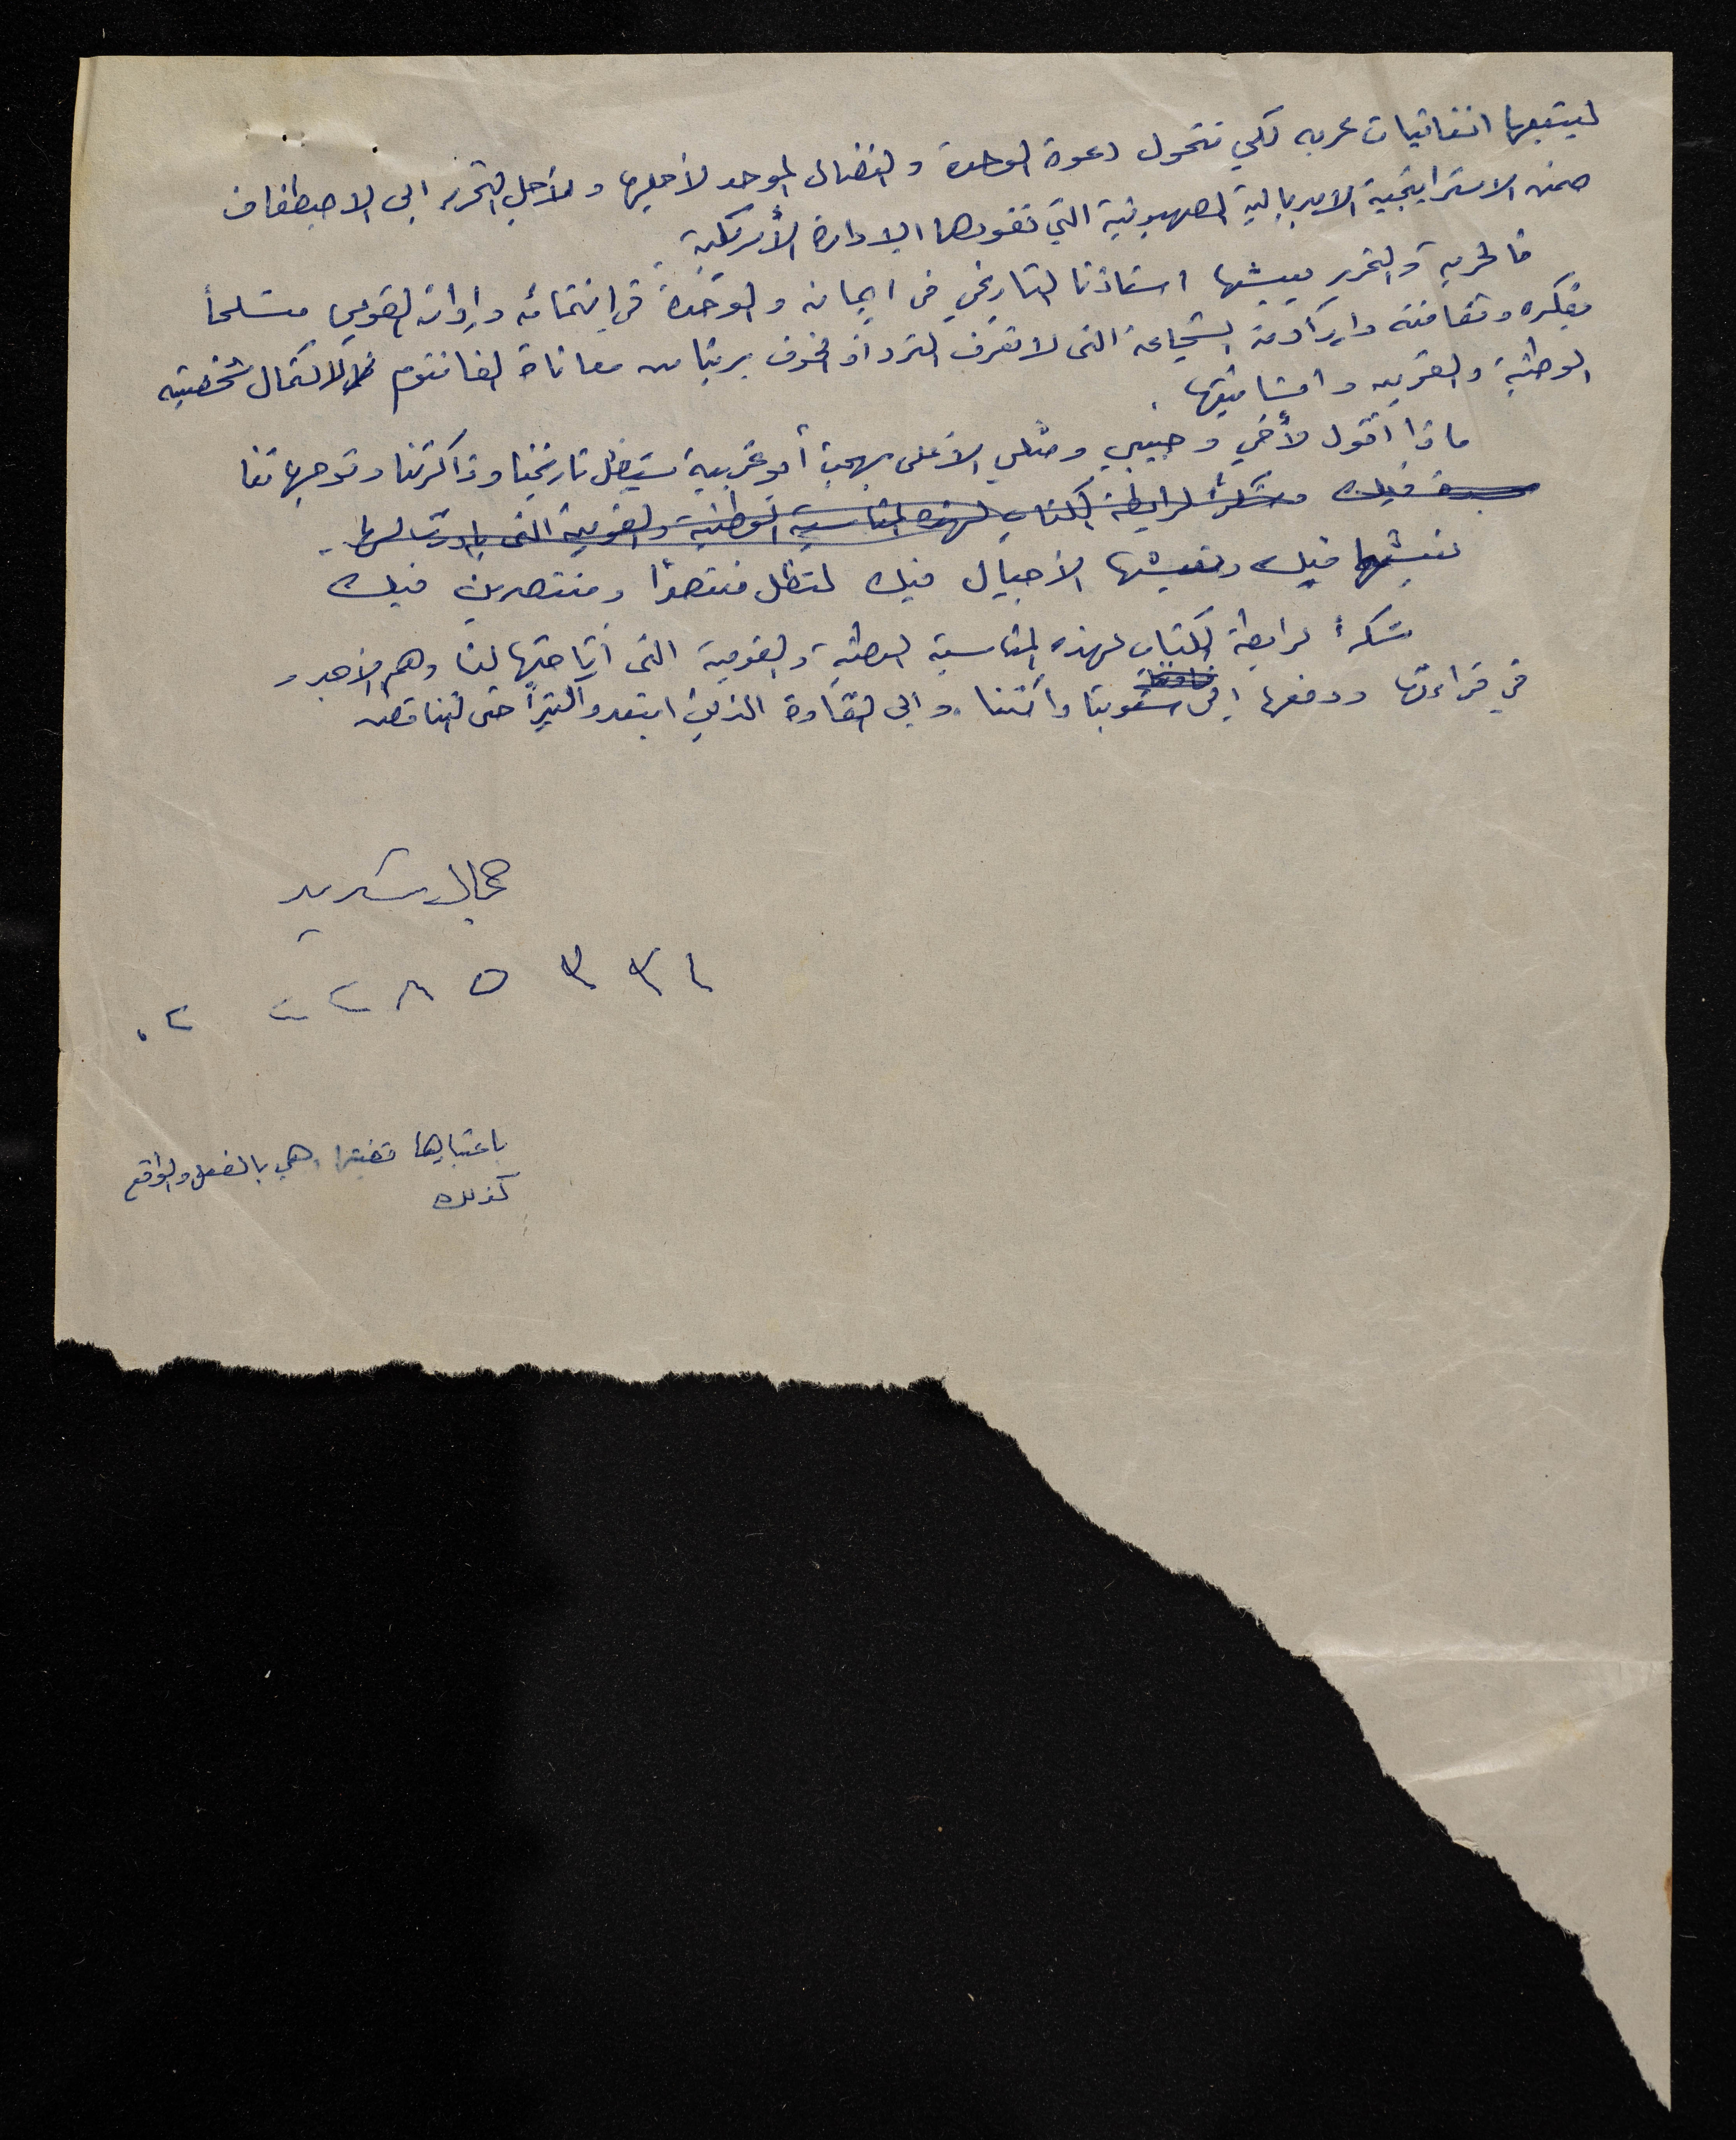 ليتبعها اتفاقيات عربيه لكي تتحول دعوة الوحدة والنضال الموحد لأجلها ولأجل التحرر الى الاصطفاف
ضمن الاستراتيجية الامبريالية الصهيونية التي تقودها الادارة الأمريكية.
فالحرية والتحرير يعيشها استاذنا التاريخي في ايمانه والوحدة في انتمائه وارادته القومي متسلحاً
بفكره وثقافته وارادته الشجاعة التي لا تعرف التردد أو الخوف بريتا من معاناة الفانتوم لاكتمال شخصيته
الوطنية والعربيه وانسانيتها.
ماذا أقول لأخي وحبيبي ومثلي الأعلى بهجت أبو غربية ستظل تاريخنا وذاكرتنا وتوجهاتنا
فيك وشكراً لرابطة الكتاب لهذه المناسبة الوطنية والقومية التي بادرت لها.
نعيشها فيك وتعيشها الأجيال فيك لتظل منتصراً ومنتصرين فيك
شكراً لرابطة الكتاب لهذه المناسبة الوطنية والقومية التي أتاحتها لنا وهم الأجدر
في قراءتها ودفعها الى شعوبنا وأمتنا. والى القادة الذين ابتعدوا كثيراً حتى التناقض
جمال شديد
٠٢ ٢٢٨٥٣٣١
باعتبارها قضيتها. هي بالفعل والواقع
كذلك